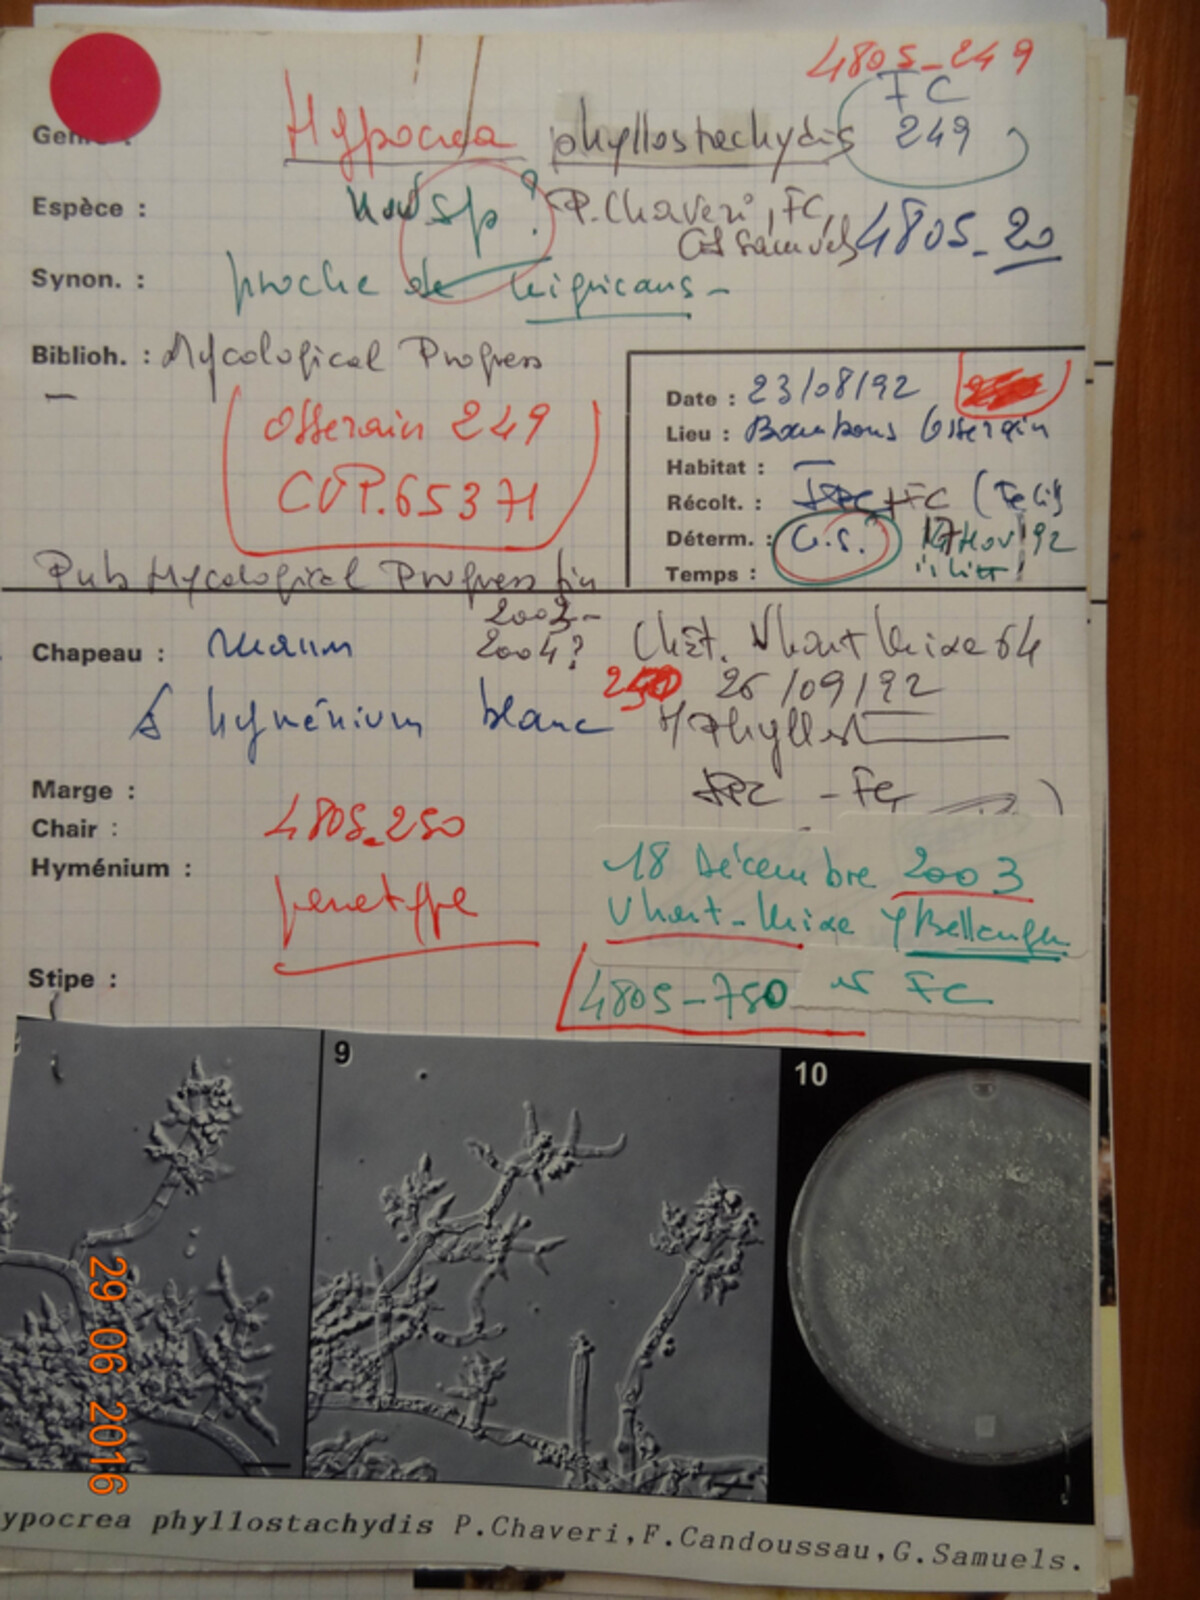 4805-249
FC
249
Genre :
Hypocrea phyllostachydis
Espèce :
nov sp ? P. Chaveri, FC,
GJ Samuels 4805-20
Synon. :
proche de nigricans -
Biblioh. : Mycological Progress
Osserain 249
CUP. 65371
Date : 23/08/92
Lieu : Bambous Osserain
Habitat : —
Récolt. : FC
Déterm. : G.S. 17 Nov 92
Temps :
Pub Mycological Progress fin
2003-
2004?
Chapeau :
Chât. Uhart Mixe 64
250 26/09/92
à hyménium blanc
H/Phyllost
Marge :
JRC - FC
Chair :
4805-250
Hyménium :
18 Décembre 2003
Uhart-Mixe
Stipe :
4805-750
FC
9
10
29 06 2016
ypocrea phyllostachydis P.Chaveri,F.Candoussau,G.Samuels.